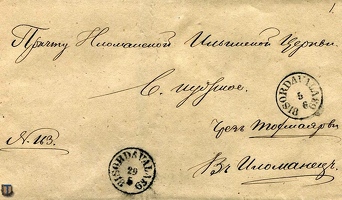 1.
Причту Иломанской Ильинской Церкви.
С. нужное.
SORDAVALA
5
6
Чрез Тохмаярви
№ 113.
SORDAVALA
29
5
Въ Иломанецъ.